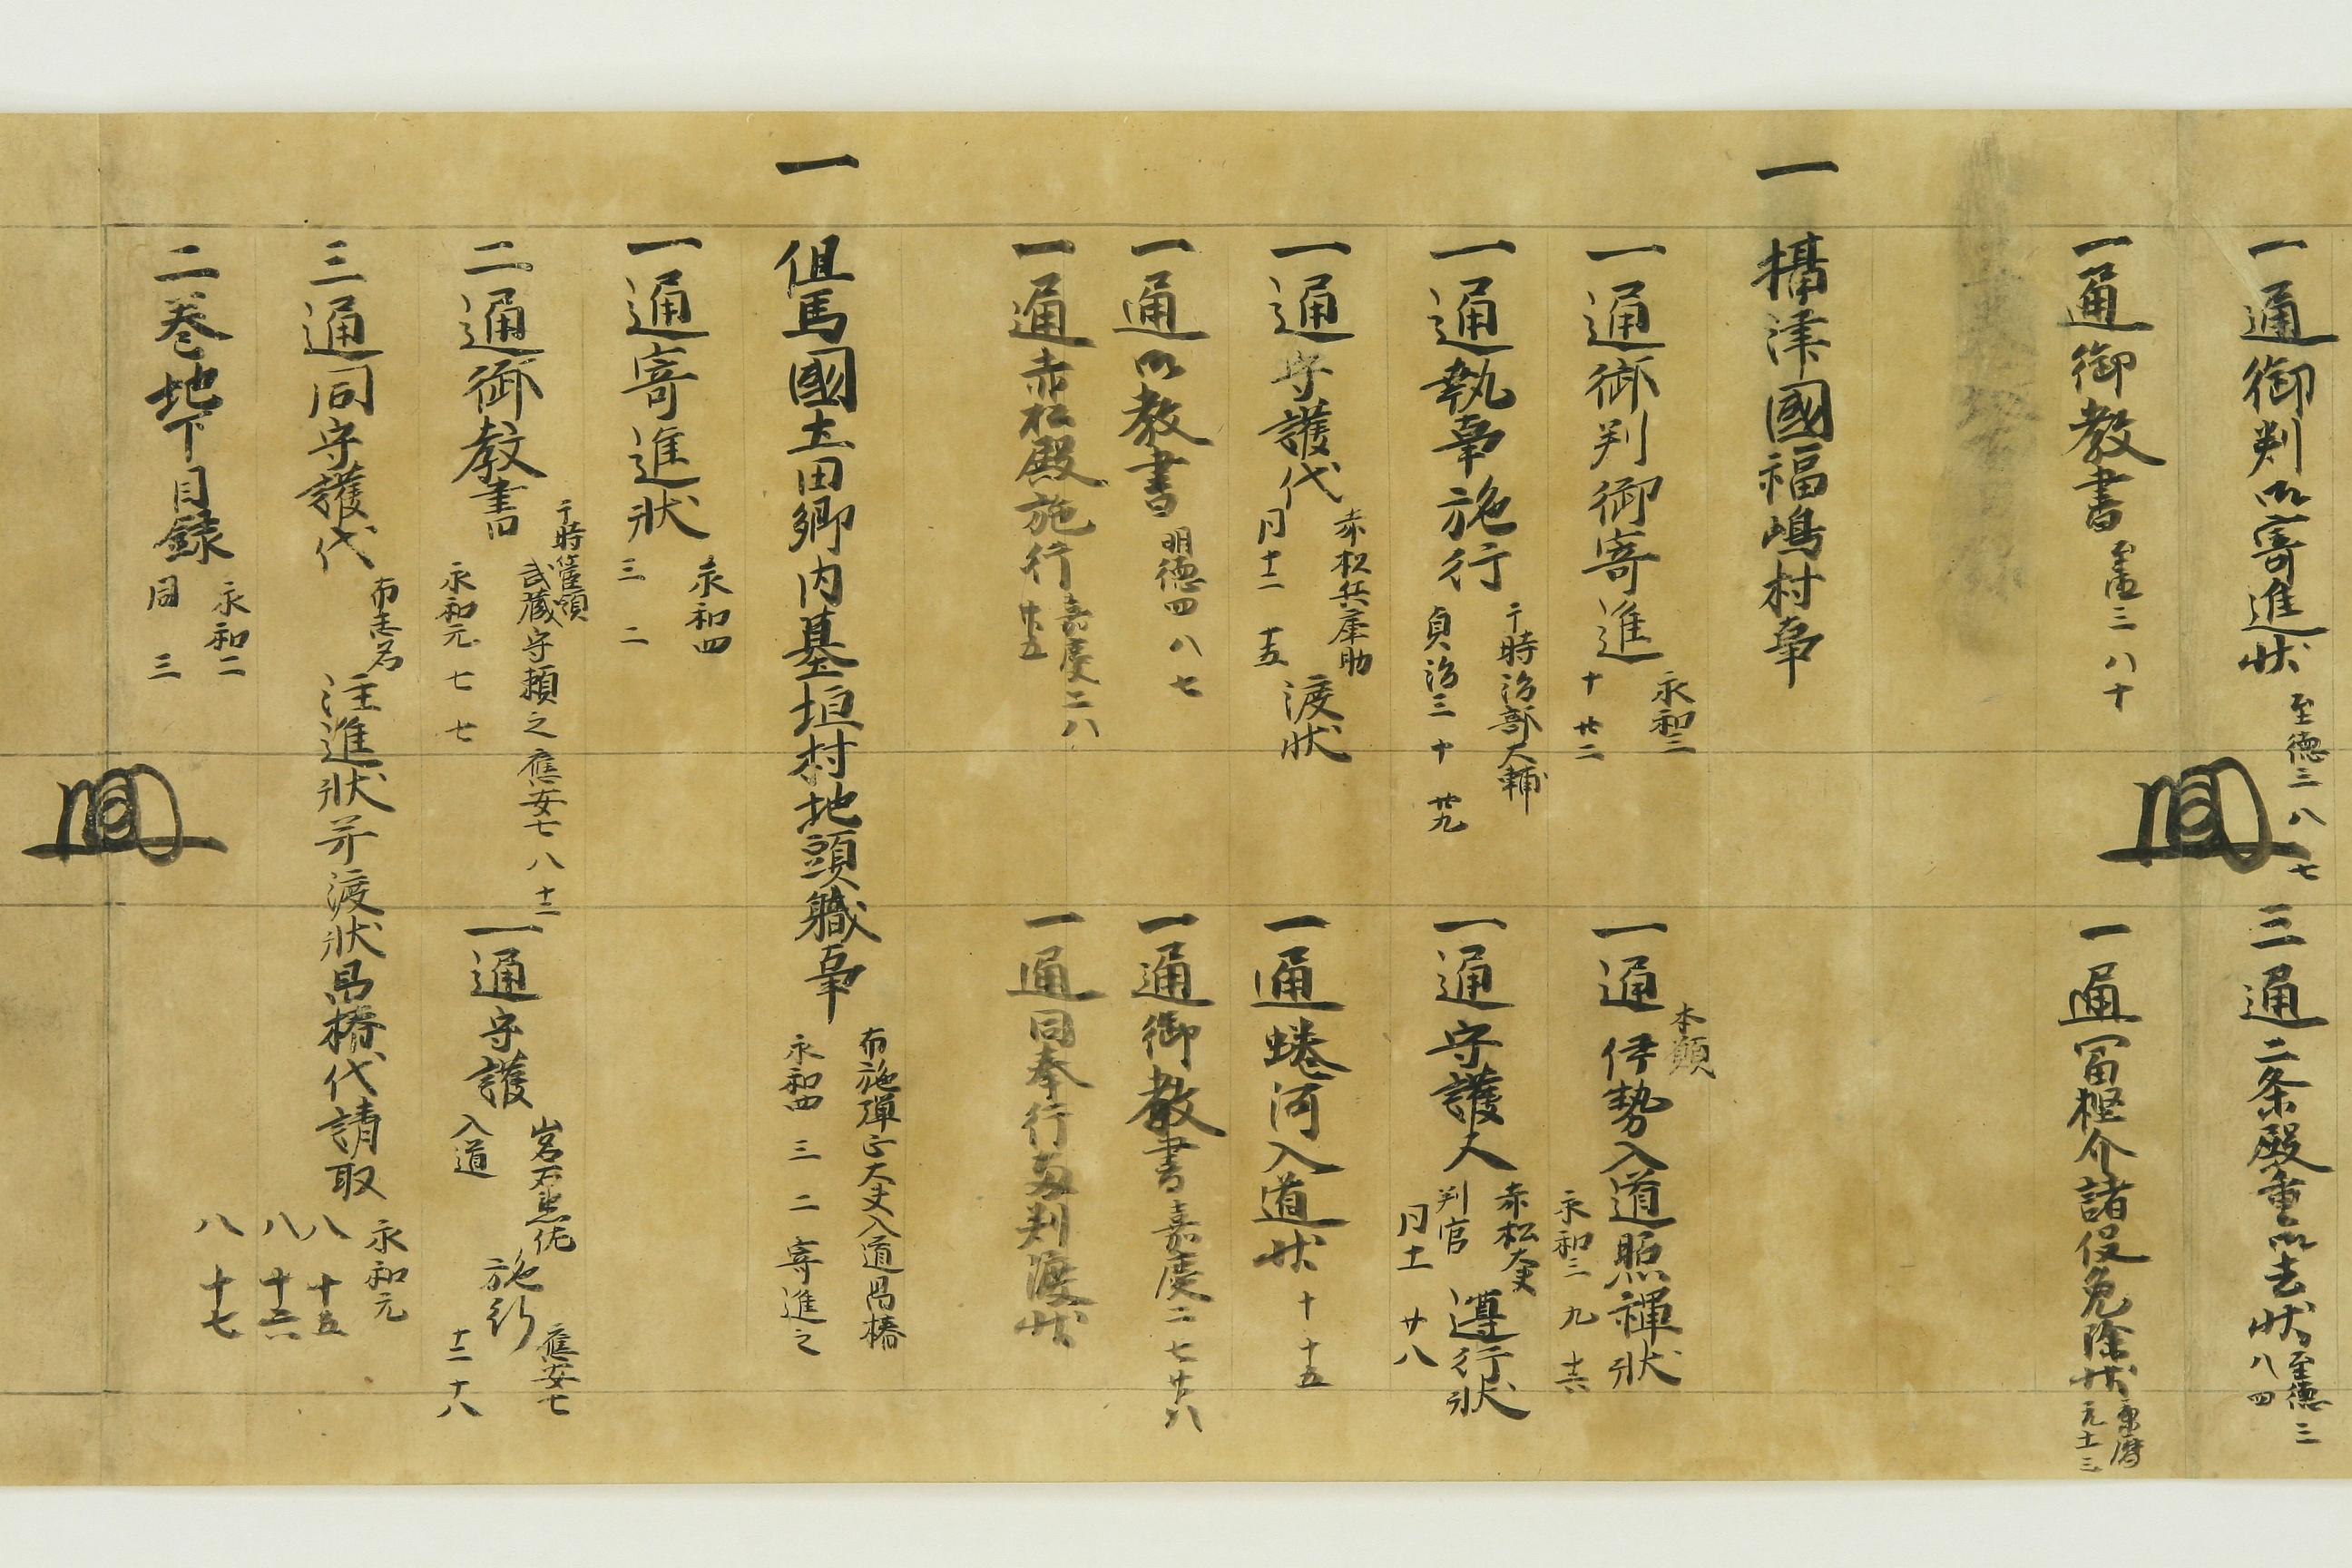 一通御判御寄進状 至徳三 八 七
三通二条殿重御去状 至徳三 八 四
一通御教書 至徳三 八 十
一通冨樫介諸役免除状 康暦元 十二 三
一 攝津國福嶋村事
一通御判御寄進 永和三 十 廿二
一通 本願 伊勢入道照禅状 永和三 九 十六
一通執事施行 于時治部大輔 貞治三 十 廿九
一通守護 赤松大夫判官 遵行状 同十一 廿八
一通守護代 赤松兵庫助 渡状 同十二 十五
一通蜷河入道状 十 十五
一通御教書 明徳四 八 七
一通御教書 嘉慶二 七 廿八
一通赤松殿施行 嘉慶二 八 廿五
一通同奉行両判渡状
一 但馬國土田郷内墓垣村地頭職事 布施弾正大夫入道昌椿 永和四 三 二 寄進之
一通寄進状 永和四 三 二
二通御教書 于時管領武蔵守頼之 應安七 八 十二 永和元 七 七
一通守護 入道 施行 應安七 十二 十八
三通同守護代 布志名 注進状并渡状昌椿代請取 永和元 八 十五 八 十六 八 十七
二巻地下目録 永和二 同 三